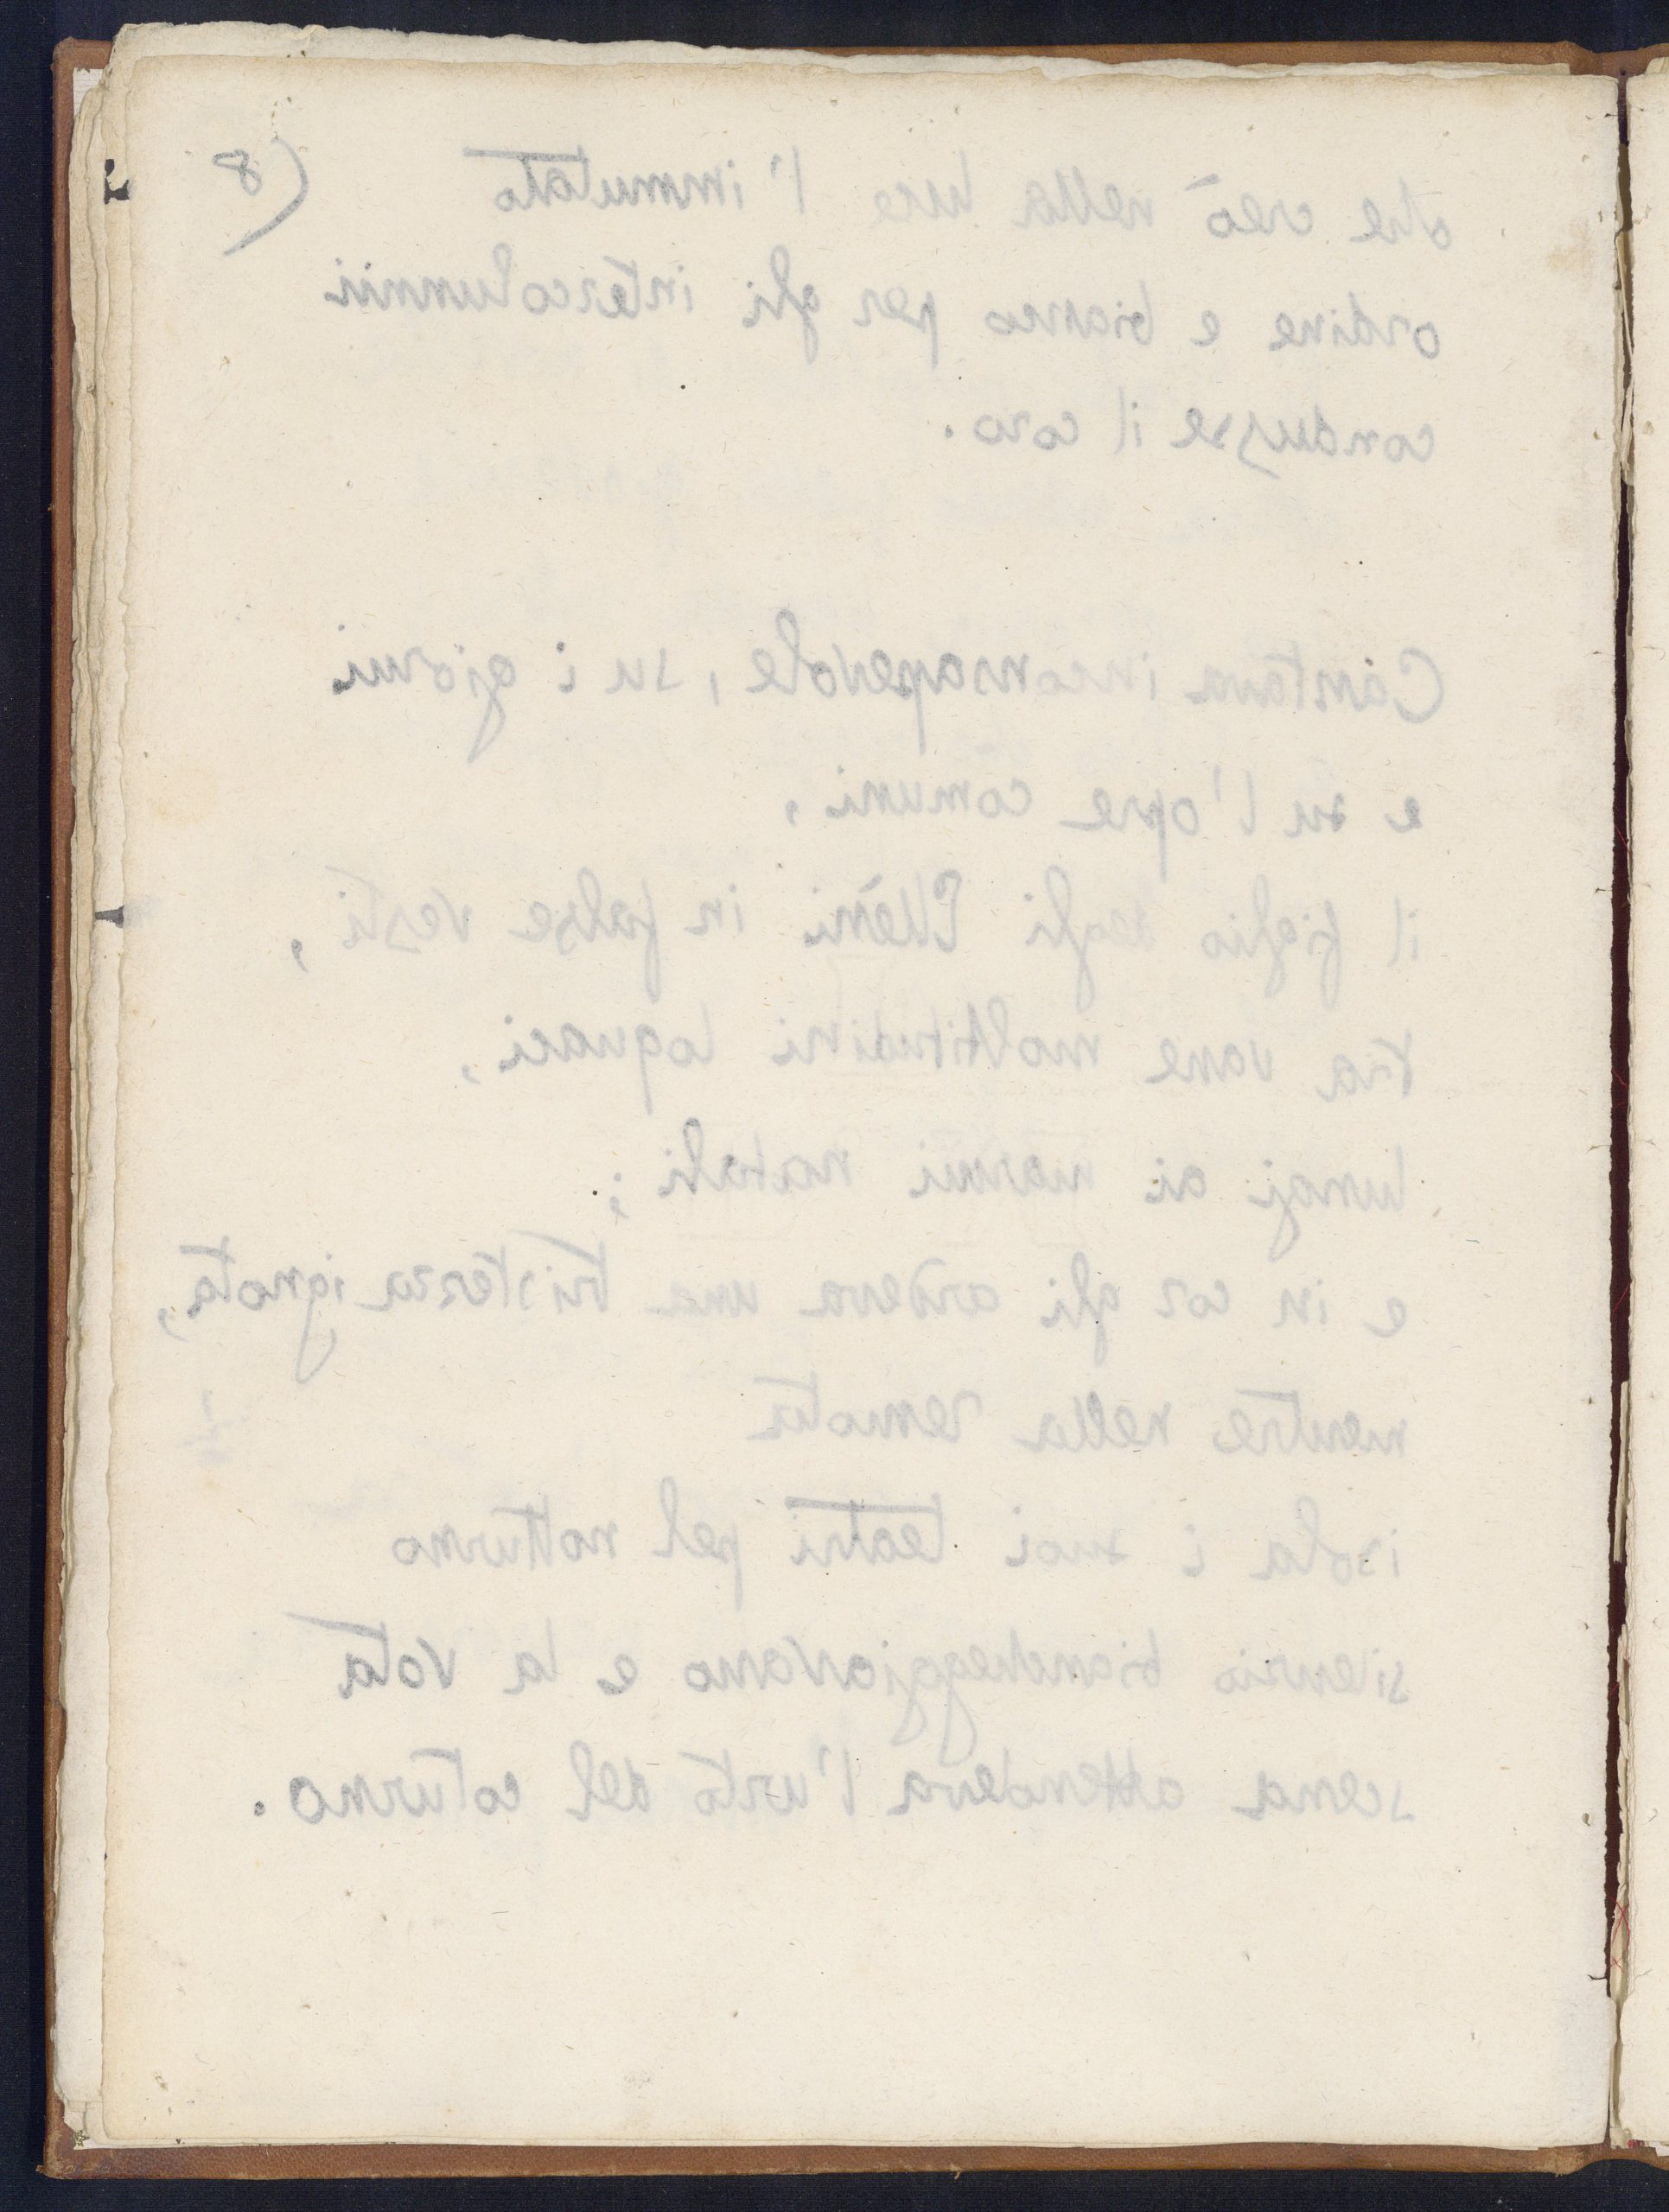 8)
che creò nella luce l'immutato
ordine e bianco per gli intercolunnii
condusse il coro.
Cantava inconsapevole, su i giorni
e su l'opre comuni,
il figlio degli Ellèni in false vesti,
tra vane moltitudini loquaci,
lungi ai marmi natali;
e in cor gli ardeva una tristezza ignota,
mentre nella remota
isola i suoi teatri pel notturno
silenzio biancheggiavano e la vota
scena attendeva l'urto del coturno.